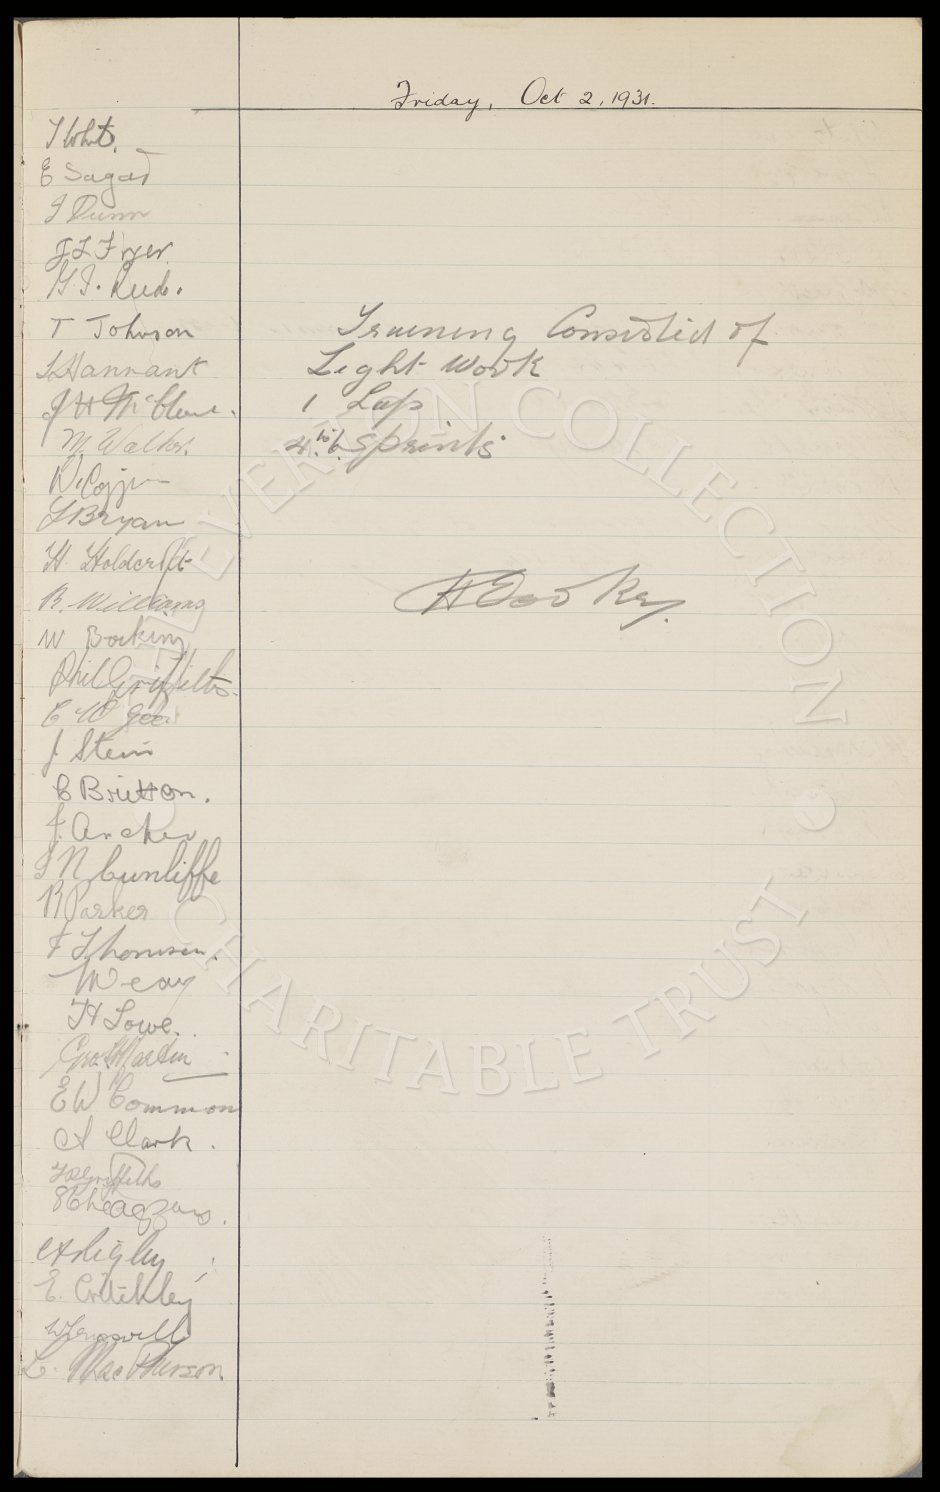 Friday, Oct 2, 1931.
T White.
E Sagar
J Dunn
J L Fryer.
T Johnson
L Hannant
J H McClure.
M. Walker.
L Bryan
H. Holdcroft
R. Williams
W Bocking
Phil Griffiths.
C W Gee
J Stein
C Britton.
J. Archer
J N Cunliffe
R Parker
J Thomson.
H Lowe.
Geo. S Martin
E W Common
A Clark.
A Rigby
E. Critchley
L. MacPherson.
Training Consisted of
Light Work
1 Lap
4 to 6 Sprints
H Cooke.
THE EVERTON COLLECTION
CHARITABLE TRUST